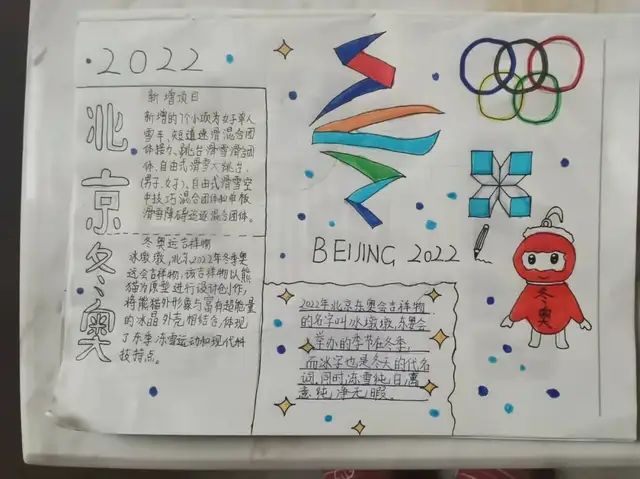 2022
北京冬奥
新增项目
新增的7个小项为女子单人
雪车、短道速滑混合团
体接力、跳台滑雪混合团
体、自由式滑雪大跳台
(男子、女子)、自由式滑雪空
中技巧混合团体和单板
滑雪障碍追逐混合团体。
冬奥运吉祥物
冰墩墩,北京2022年冬季奥
运会吉祥物,该吉祥物以熊
猫为原型进行设计创作,
将熊猫外形象与富有超能量
的冰晶外壳相结合,体现
了冬季冰雪运动和现代科
技特点。
BEIJING 2022
2022年北京冬奥会吉祥物
的名字叫冰墩墩,冬奥会
举办的季节在冬季,
而冰字也是冬天的代名
词,同时,冻雪纯白,寓
意纯净无暇。
冬奥